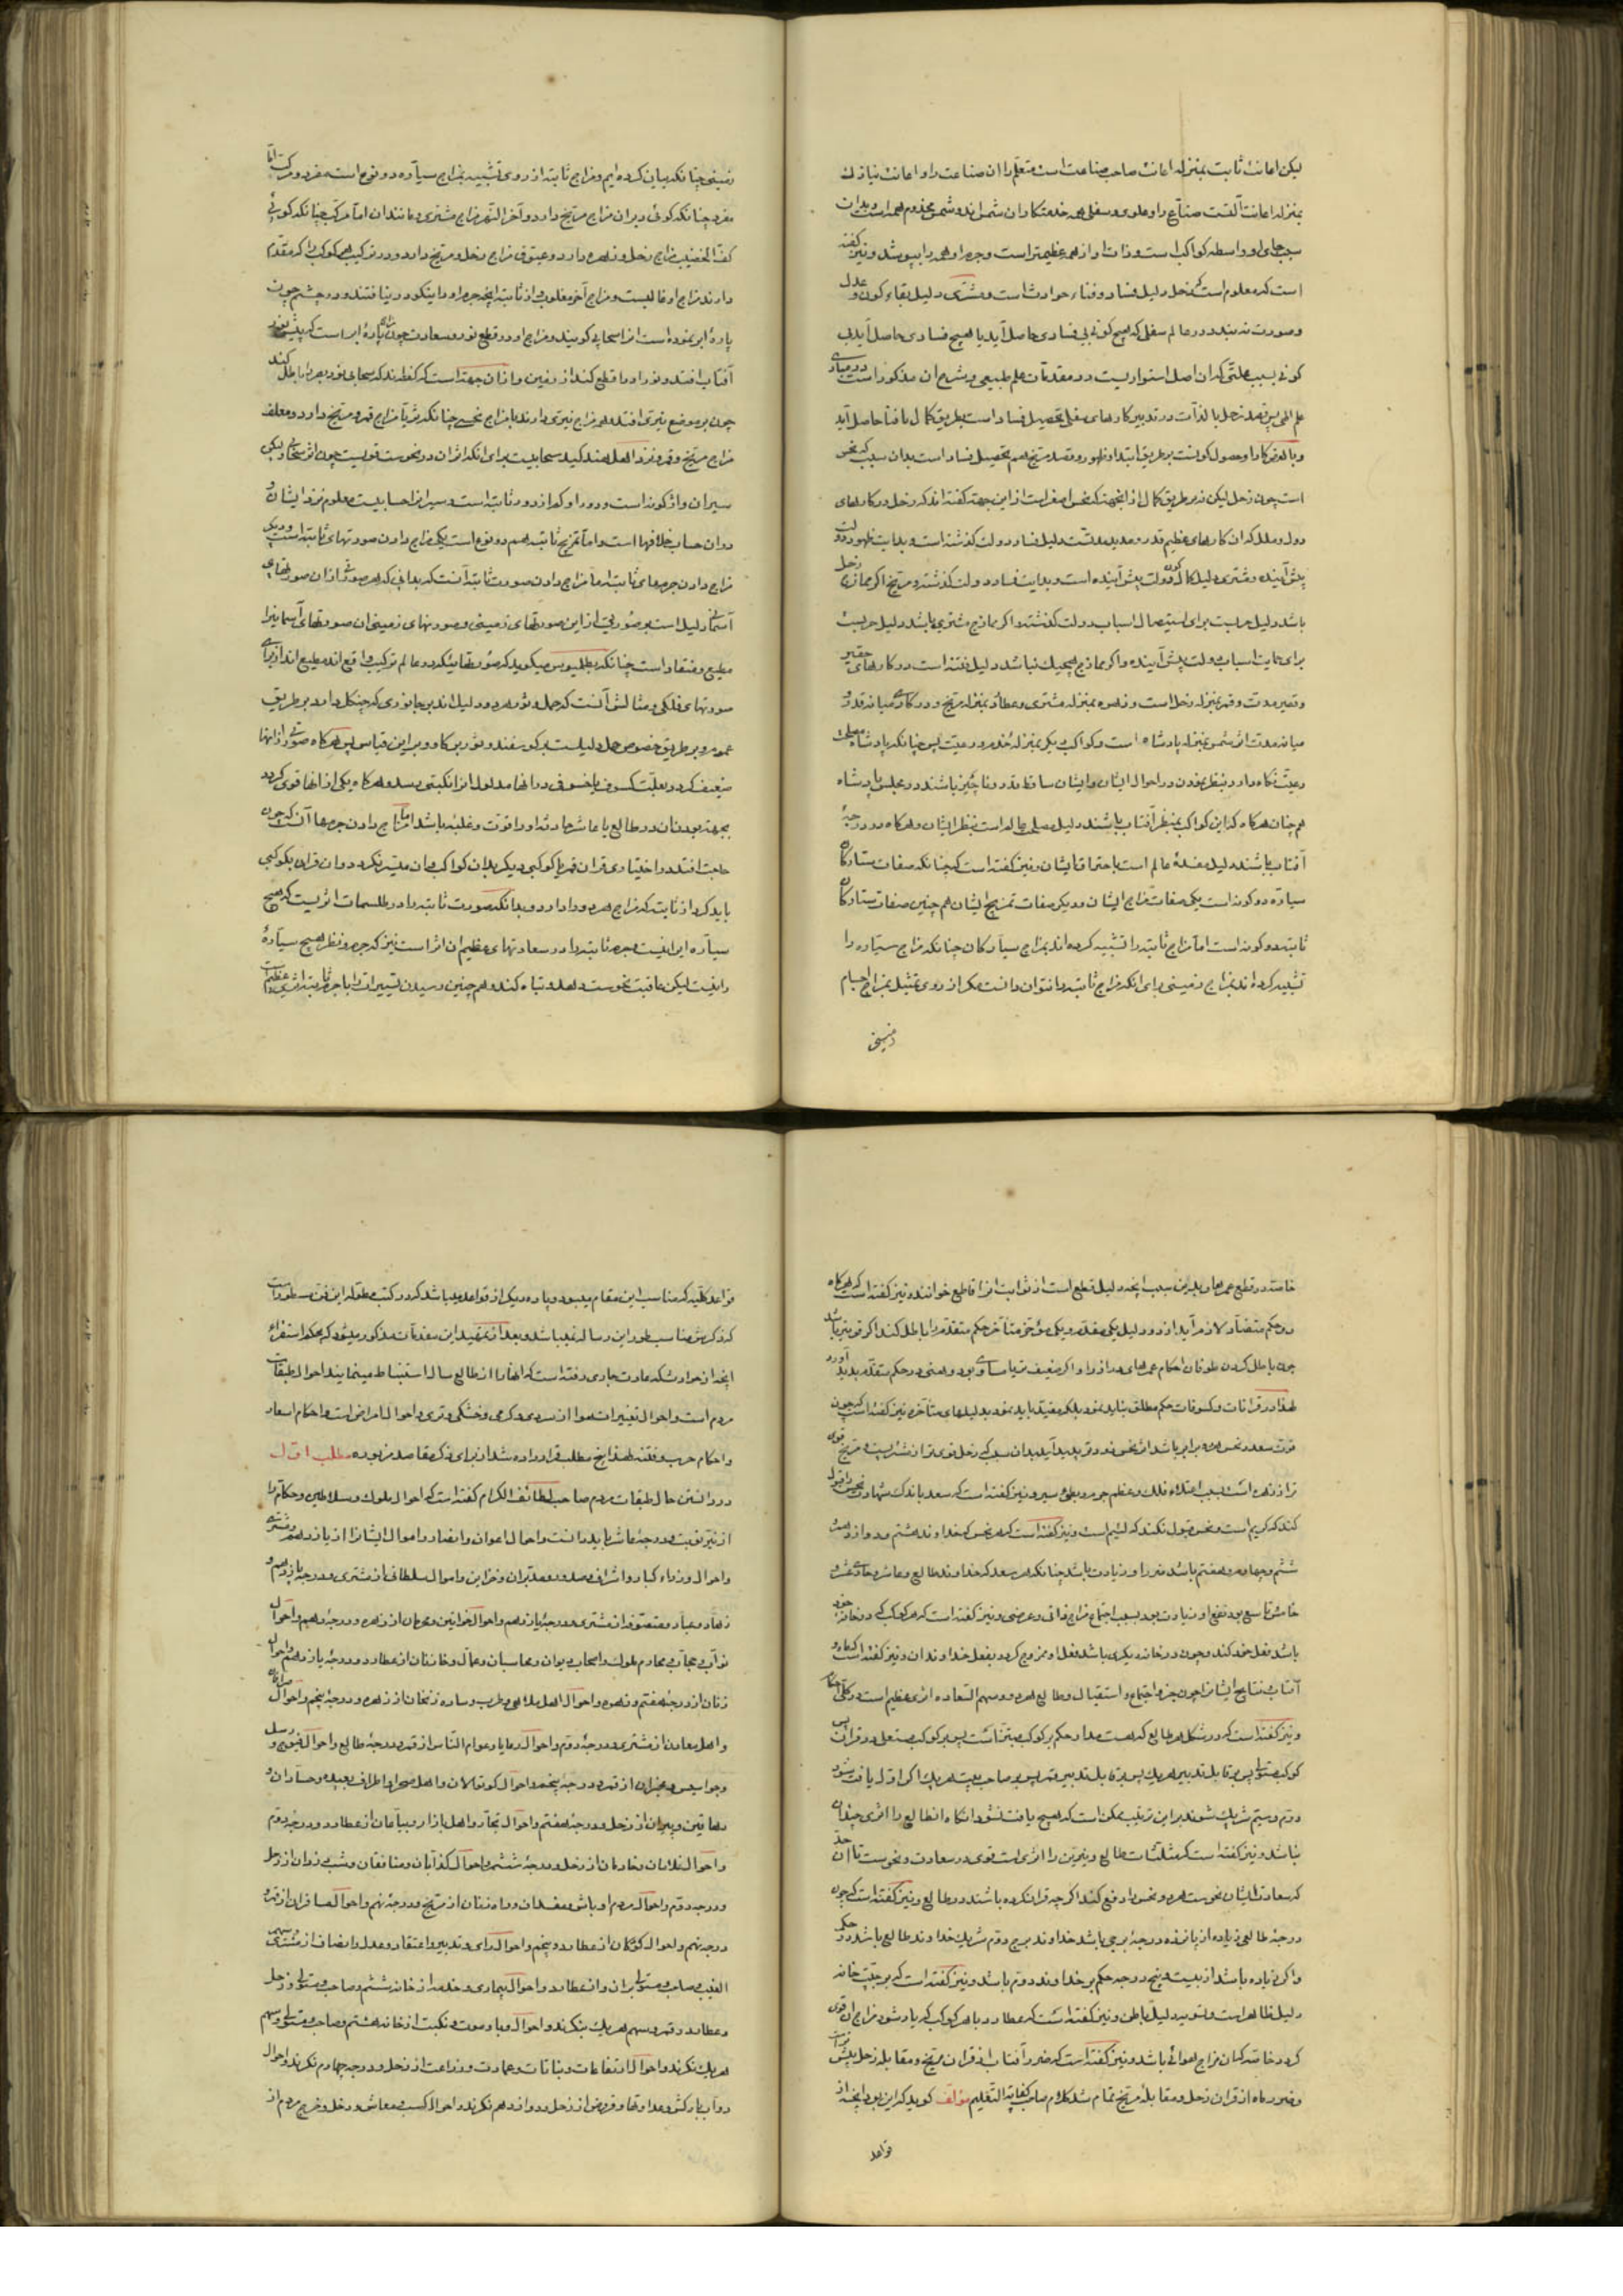 لیکن اعانت ثابت بمنزله اعانت صاحب صناعت است متعلم را ان صناعت را و اعانت نیازک
بمنزله اعانت آلتست صناع را و علوی و سفلی همه خدمتکاران شمس اند و شمس مخدوم همه است و بدان
سبب جای او واسطه کواکب است و ذات او از همه عظیمتر است و جرم او همه را بپوشد و نیز کفته
است که معلوم است که زحل دلیل فساد و فناء حوادث است و مشتری دلیل بقاء کون و عدل
و صورت نه بندد در عالم سفلی که هیچ کونی بی فسادی حاصل آید یا هیچ فسادی حاصل آید بی
کونی بسبب علتی که ان اصل استواریست در مقدمات علم طبیعی و شرح ان مذکور است در مبادی
علم الهی پس قصد زحل بالذات در تدبیر کارهای سفلی تحصیل فساد است بطریق کمال تا فنا حاصل آید
و بالعرض کار او حصول کونست بر طریق ابتدا و ظهور و قصد مریخ هم تحصیل فساد است بدان سبب که نحس
است چون زحل لیکن نه بر طریق کمال از انجهت که نحس اصغر است از این جهت کفته اند که زحل در کارهای
دول و ملل که ان کارهای عظیم قدر و مدید مدتست دلیل فساد دولت کذشته است و بدایت ظهور دولت
پیش آینده و مشتری دلیل کمال کون دولت پیش آینده است و بدایت فساد دولت کذشته و مریخ اکر ممازج زحل
باشد دلیل حربست برای استیصال اسباب دولت کذشته و اکر ممازج مشتری باشد دلیل حربست
برای حمایت اسباب دولت پیش آینده و اکر ممازج هیچیک نباشد دلیل فتنه است در کارهای حقیر
و قصیر مدت و قمر بمنزله زحل است و زهره بمنزله مشتری و عطارد بمنزله مریخ و در کارهای میانه قدر و
میانه مدت اثر شمس بمنزله پادشاه است و کواکب دیکر بمنزله خدم و رعیت پس چنانکه پادشاه مصلحت
رعیت نکاه دارد بنظر نمودن در احوال ایشان و ایشان ساقط قدر و ناچیز باشند در مجلس پادشاه
هم چنان هرکاه که این کواکب بمنظر آفتاب باشند دلیل صلاح عالم است بنظر ایشان و هرکاه در درجه
آفتاب باشند دلیل مفسده عالم است باحتراق ایشان و نیز کفته است که چنانکه صفات ستارکان
سیاره دو کونه است یکی صفات مزاج ایشان و دیکر صفات تمزیج ایشان هم چنین صفات ستارکان
ثابته دو کونه است اما مزاج ثابته را تشبیه کرده اند بمزاج سیارکان چنانکه مزاج سیاره را
تشبیه کرده اند بمزاج زمینی برای انکه مزاج ثابته را نتوان دانست مکر از روی تمثیل بمزاج اجسام
زمینی
زمینی چنانکه بیان کرده ایم و مزاج ثابته از روی تشبیه بمزاج سیاره دو نوع است مفرد و مرکب اما
مفرد چنانکه کوئی دبران مزاج مریخ دارد و آخر النهر مزاج مشتری و مانند ان اما مرکب چنانکه کویی
کف الخضیب مزاج زحل و زهره دارد و عیوق مزاج زحل و مریخ دارد و در ترکیب هر کوکب را که مقدم
دارند مزاج او غالبست و مزاج آخر مغلوب و از ثابته انچه جرم او را نیکو در نیافتند و در چشم چون
پاره ابر نموده است انرا سحابی کویند و مزاج او در قطع نور و سعادت چون پاره ابر است که پیش نور
آفتاب افتد و نور او را قطع کند از زمین و از ان جهت است که کفته اند که سحابی نور بصر را باطل کند
چون بر موضع نیری افتد و هر مزاج نیری دارند یا مزاج نحسی چنانکه ثریا مزاج قمر و مریخ دارد و معلف
مزاج مریخ و قمر و نزد اهل هند کید سحابیست برای انکه اثر ان در نحوست قویست چون اثر سحابی لیکن
سیر ان واژکونه است و دور او کمر از دور ثابته است و سیر انرا حسابیست معلوم نزد ایشان و
در ان حساب خلافها است و اما تمزیج ثابته هم دو نوع است یکی مزاج دادن صورتهای ثابته است و دیکر
مزاج دادن جرمهای ثابته اما مزاج دادن صورت ثابته آنست که بدانی که هر صورتی از ان صورتهای
آسمانی دلیل است بر صورتی از این صورتهای زمینی و صورتهای زمینی ان صورتهای آسمانی را
مطیع و منقاد است چنانکه بطلمیوس میکوید که صورتهائیکه در عالم ترکیب واقع اند مطیع اند از برای
صورتهای فلکی و مثالش آنست که حمل و ثور هر دو دلیل اند بر جانوری که چنکل دارد بر طریق
عموم و بر طریق خصوص حمل دلیلست بر کوسفند و ثور بر کاو و بر این قیاس پس هرکاه صورتی از انها
ضعیف کردد بعلت کسوف یا خسوف در انها مدلول انرا نکبتی رسد و هرکاه یکی از انها قوی کردد
بجهت بودنش در طالع یا عاشر حادثه او را قوت و غلبه باشد اما مزاج دادن جرمها آنست که چون
حاجت افتد در اختیاری قران قمر یا کوکبی دیکر بدان کواکب و ان میسر نکردد در ان قران بکوکبی
باید کرد از ثابته که مزاج هر دو دارد و بدانکه صورت ثابته را در طلسمات اثریست که هیچ
سیاره را این نیست و جرم ثابته را در سعادتهای عظیم ان اثر است نیز که جرم و نظر هیچ سیاره
را نیست لیکن عاقبت نحوست دهد و تباه کند و هم چنین رسیدن تسییرات را با جرم ثابته اثری عظیم است
خاصه در قطع عمرها و بدین سبب انچه دلیل قطع است از ثوابت انرا قاطع خوانند و نیز کفته است که هرکاه
دو حکم متضاد لازم آید از دو دلیل یکی مقدم و یکی مؤخر متأخر حکم متقدم را باطل کند اکر قویتر باشد
چون باطل کردن طوفان احکام عمرهای دراز را و اکر ضعیف تر یا مساوی بود وهنی در حکم متقدم پدید آورد
لهذا در قرانات و کسوفات حکم مطلق نباید نمود بلکه مقید باید نمود بدلیلهای متأخره نیز کفته است که چون
قوت سعد و نحس هر دو برابر باشد اثر نحس زودتر پدید آید بدان سبب که زحل قوی تر از مشتریست و مریخ قوی
تر از زهره است بسبب اعتلاء فلک و عظم جرم و بطئ سیر و نیز کفته است که سعد باندک شهادت نحس را قبول
کند که کریم است و نحس قبول نکند که لئیم است و نیز کفته است که هر نحس که خداوند هشتم و دوازدهم
ششم و چهارم و هفتم باشد ضرر او زیادت باشد چنانکه هر سعد که خداوند طالع و عاشر و حادی عشر و
خامس و تاسع بود نفع او زیادت بود بسبب اجتماع مزاج ذاتی و عرضی و نیز کفته است که هر کوکب که در خانه خود
باشد فعل خود کند و چون در خانه دیکری باشد فعل او ممزوج کردد بفعل خداوند ان و نیز کفته است که ماه و
آفتاب نتایج ایشانرا چون جزو اجتماع و استقبال و طالع هر دو و سهم السعاده اثری عظیم است در کلی احکام
و نیز کفته است که در شکل هر طالع که هست مدار حکم بر کوکب مبتز است پس بر کوکب مستعلی در قران پس
کوکب مستولی پس بر قابل تدبیر هر یک پس بر قابل تدبیر قمر پس بر صاحب بیت هر یک اکر اول یافت شود
دوم و سیم شریک شوند بر این ترتیب ممکن است که هیچ یافت نشود انکاه ان طالع را اثری چندان
نباشد و نیز کفته است که مثلثات طالع و نیرین را اثری است قوی در سعادت و نحوست تا ان حد
که سعادت ایشان نحوست هر دو نحس را دفع کند اکر چه قران کرده باشند در طالع و نیز کفته است که چون
درجه طالعی زیاده از پانزده درجه برجی باشد خداوند برج دوم شریک خداوند طالع باشد در حکم
و اکر زیاده باشد از بیست و پنج درجه حکم بر خداوند دوم باشد و نیز کفته است که مرکز بیت خانه
دلیل ظاهر است و تسویه دلیل باطن و نیز کفته است که عطارد با هر کوکب که یار شود مزاج ان قوی
کردد خاصه که ان مزاج هوائی باشد و نیز کفته است که ضرر آفتاب از قران مریخ و مقابله زحل بیش
و ضرر ماه از قران زحل و مقابله مریخ تمام شد کلام صاحب کفایة التعلیم مؤلف کوید که این بود انچه از
قواعد
قواعد کلیه که مناسب این مقام مینمود و پاره دیکر از قواعد میباشد که در کتب مطوله این فن مسطور است
که ذکرش مناسب طور این رساله نمیباشد و بعد از تمهید این مقدمات مذکور میشود که بحکم استقراء
انچه از حوادث که عادت جاری رفته است که انها را از طالع سال استنباط مینمایند احوال طبقات
مردم است و احوال تغییرات هوا از سردی و کرمی و خشکی و تری و احوال امراض است و احکام اسعار
و احکام حرب و فتنه لهذا پنج مطلب قرار داده شد از برای ذکر مقاصد مزبوره مطلب اول
در دانستن حال طبقات مردم صاحب لطائف الکرام کفته است که احوال ملوک و سلاطین و حکام را
از نیر نوبت و درجه عاشر باید دانست و احوال اعوان و انصار و اموال ایشانرا از یازدهم و مشتری
و احوال وزراء کبار و اشراف و صدور و مدبران و خزاین و اموال سلطانی از مشتری و درجه یازدهم و
زهاد و عباد و متصوفه از مشتری و درجه یازدهم و احوال خواتین و حرمان از زهره و درجه دهم و احوال
نواب و حجاب و محارم ملوک و اصحاب دیوان و محاسبان و عمال و خازنان از عطارد و درجه یازدهم و احوال
زنان از درجه هفتم و زهره و احوال اهل ملاهی و طرب و ساده زنخان از زهره و درجه پنجم و احوال
و اهل معادن از مشتری و درجه دوم و احوال رعایا و عوام الناس از قمر و درجه طالع و احوال فیوج و رسل
و جواسیس و مخبران از قمر و درجه پنجم و احوال کوتوالان و اهل صحرا و اطراف بعیده و حسادان و
دهاقین و پیران از زحل و درجه هفتم و احوال تجار و اهل بازار و بیاعان از عطارد و درجه دوم
و احوال غلامان و خادمان از زحل و درجه ششم و احوال کذابان و منافقان و شب روان از زحل
و درجه دوم و احوال مردم اوباش و مفسدان و راه زنان از مریخ و درجه نهم و احوال مسافران از قمر و
درجه نهم و احوال کودکان از عطارد و پنجم و احوال رای و تدبیر و اعتقاد و عدل و انصاف از مشتری و سهم
الغیب و صاحب و مستولی بر ان و از عطارد و احوال بیماری و خدم از خانه ششم و صاحب و مستولی و زحل
و عطارد و قمر و سهم هر یک بنکرند و احوال وبا و موت و نکبت از خانه هشتم و صاحب و مستولی و سهم
هر یک نکرند و احوال ارتفاعات و نباتات و عمارت و زراعت از زحل و درجه چهارم نکرند و احوال
دواب بارکش و عداوتها و قروض از زحل و دوازدهم نکرند و احوال کسب و معاش و دخل و خرج مردم از